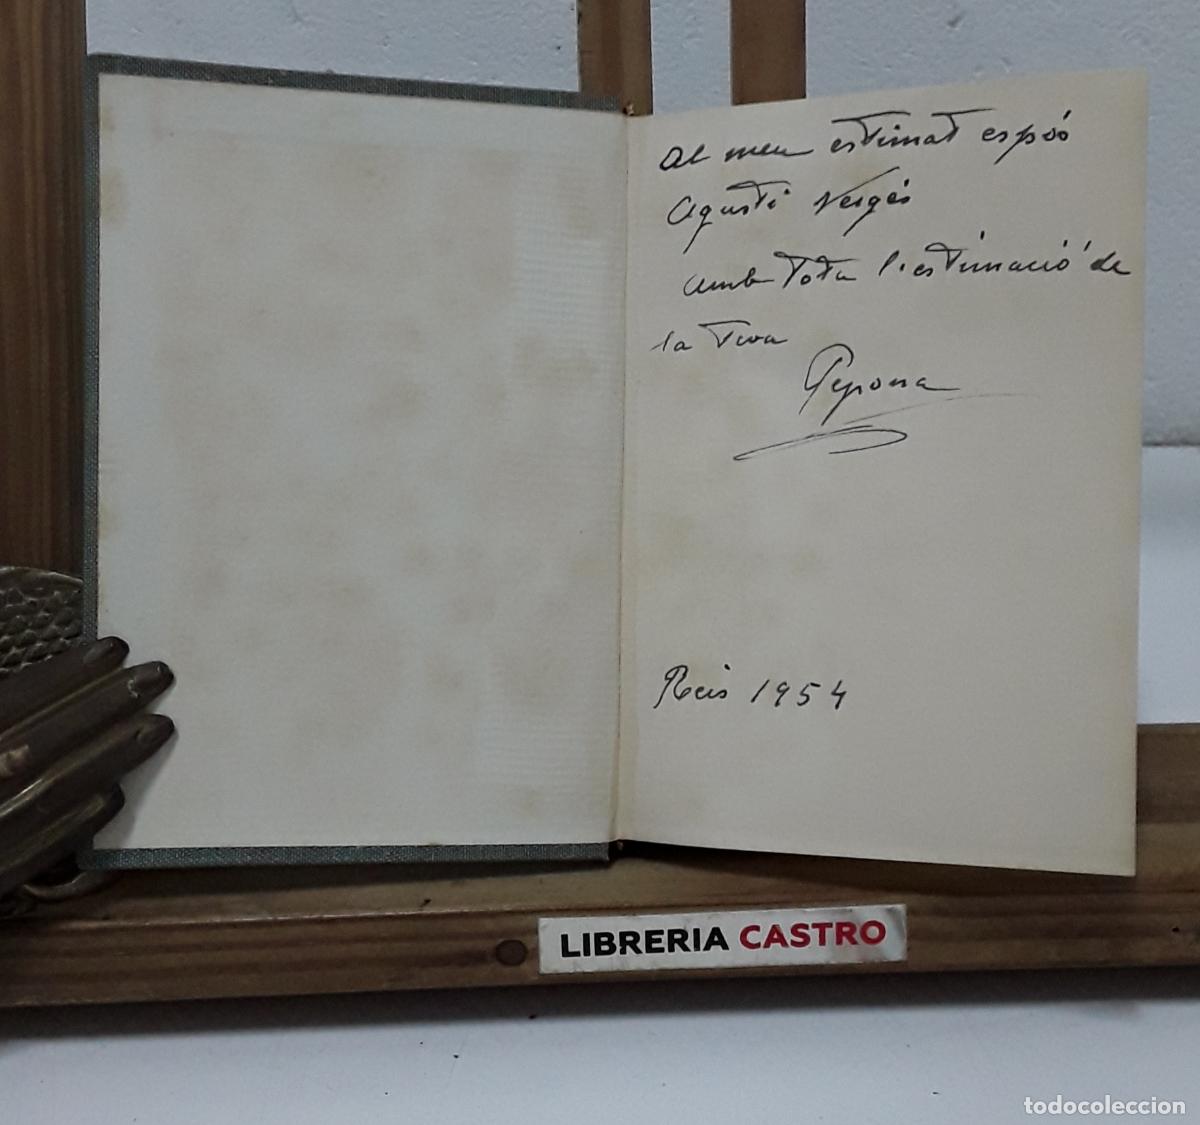 Al meu estimat espós
Agustí Vergés
amb tota l'estimació de
la teva
Pepona
Reis 1954
LIBRERIA CASTRO
todocoleccion